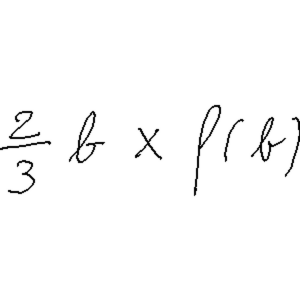 \frac{2}{3} b \times p(b)